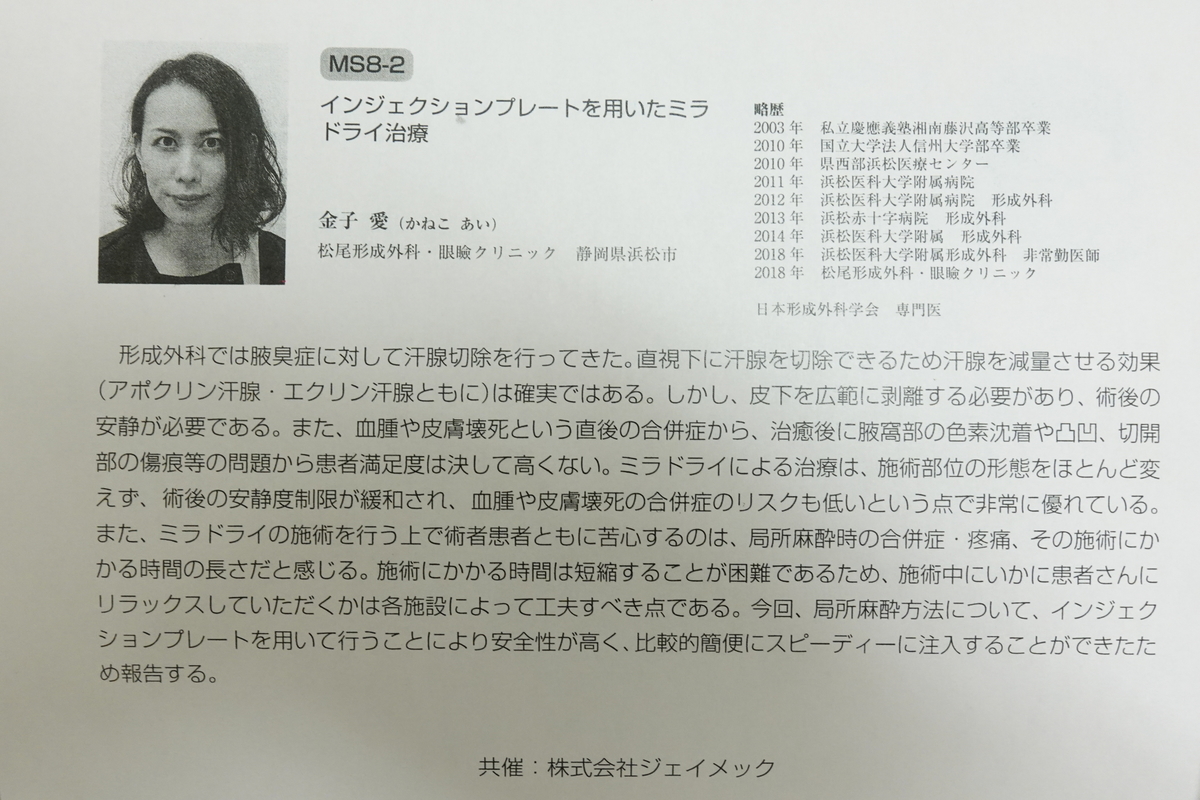 MS8-2
インジェクションプレートを用いたミラ
ドライ治療
金子 愛（かねこ あい）
松尾形成外科・眼瞼クリニック　静岡県浜松市
略歴
2003年　私立慶應義塾湘南藤沢高等部卒業
2010年　国立大学法人信州大学部卒業
2010年　県西部浜松医療センター
2011年　浜松医科大学附属病院
2012年　浜松医科大学附属病院　形成外科
2013年　浜松赤十字病院　形成外科
2014年　浜松医科大学附属　形成外科
2018年　浜松医科大学附属形成外科　非常勤医師
2018年　松尾形成外科・眼瞼クリニック
日本形成外科学会　専門医
形成外科では腋臭症に対して汗腺切除を行ってきた。直視下に汗腺を切除できるため汗腺を減量させる効果
（アポクリン汗腺・エクリン汗腺ともに）は確実ではある。しかし、皮下を広範に剥離する必要があり、術後の
安静が必要である。また、血腫や皮膚壊死という直後の合併症から、治癒後に腋窩部の色素沈着や凸凹、切開
部の傷痕等の問題から患者満足度は決して高くない。ミラドライによる治療は、施術部位の形態をほとんど変
えず、術後の安静度制限が緩和され、血腫や皮膚壊死の合併症のリスクも低いという点で非常に優れている。
また、ミラドライの施術を行う上で術者患者ともに苦心するのは、局所麻酔時の合併症・疼痛、その施術にか
かる時間の長さだと感じる。施術にかかる時間は短縮することが困難であるため、施術中にいかに患者さんに
リラックスしていただくかは各施設によって工夫すべき点である。今回、局所麻酔方法について、インジェク
ションプレートを用いて行うことにより安全性が高く、比較的簡便にスピーディーに注入することができたた
め報告する。
共催：株式会社ジェイメック